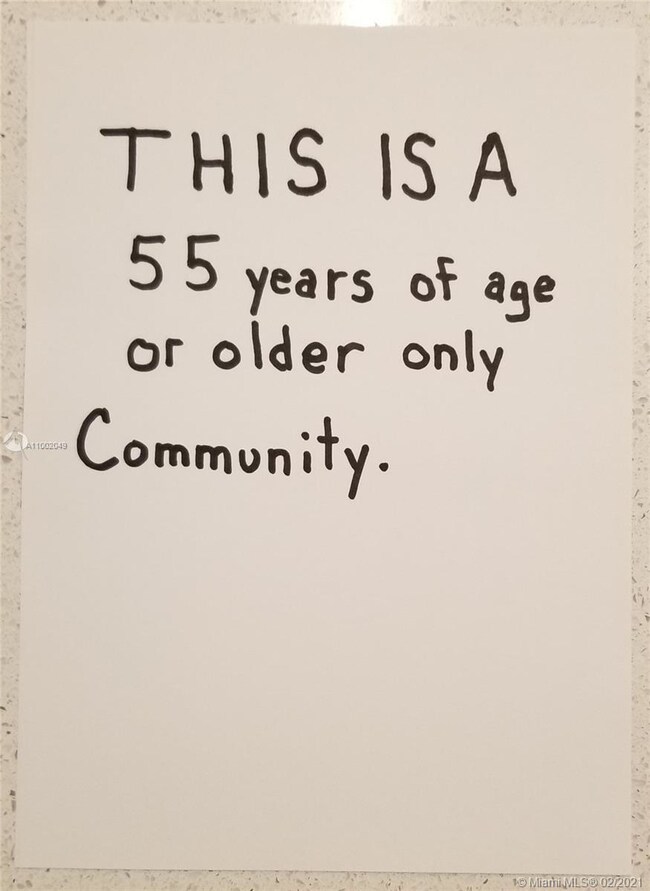 THIS IS A
55 years of age
or older only
Community.
A11002049
© Miami MLS® 02/2021